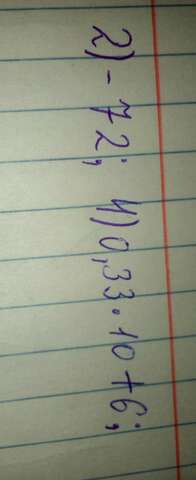 2) - 72; 4) 0,33·10+6;